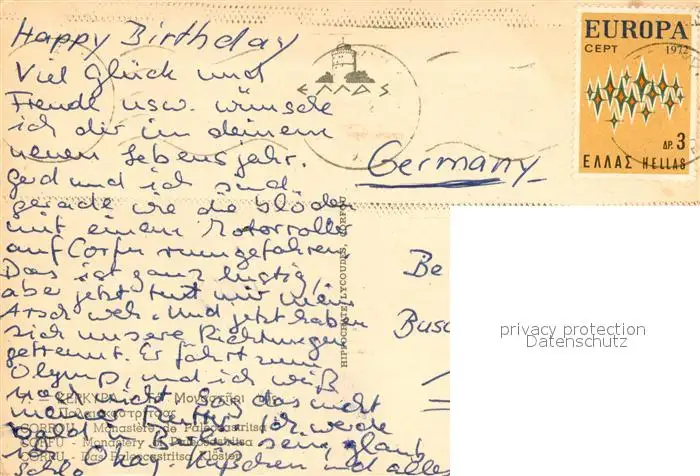 Happy Birthday
Viel Glück und
Freude usw. wünsche
ich dir in deinem
neuen Lebensjahr.
Gerd und ich sind
gerade wie die Blöden
mit einem Motorroller
auf Corfu rumgefahren
Das ist ganz lustig,
aber jetzt tut mir mein
Arsch weh. Und jetzt haben
sich unsere Richtungen
getrennt. Er fährt zum
Olymp, und ich weiß
noch nicht
ich werde
bald in sein, glaub
ich. Okay. Küßchen und alles
ΕΛΛΑΣ
EUROPA
CEPT 1972
ΔΡ. 3
ΕΛΛΑΣ HELLAS
Germany
HIPPOCRATE LYCOUDES, CORFOU
Be
Busc
privacy protection
Datenschutz
ΚΕΡΚΥΡΑ - Τὸ Μοναστῆρι τῆς
Παλαιοκαστρίτσας
CORFOU - Monastère de Paleocastritsa
CORFU - Monastery of Paleocastritsa
CORFU - Das Paleocastritsa Kloster